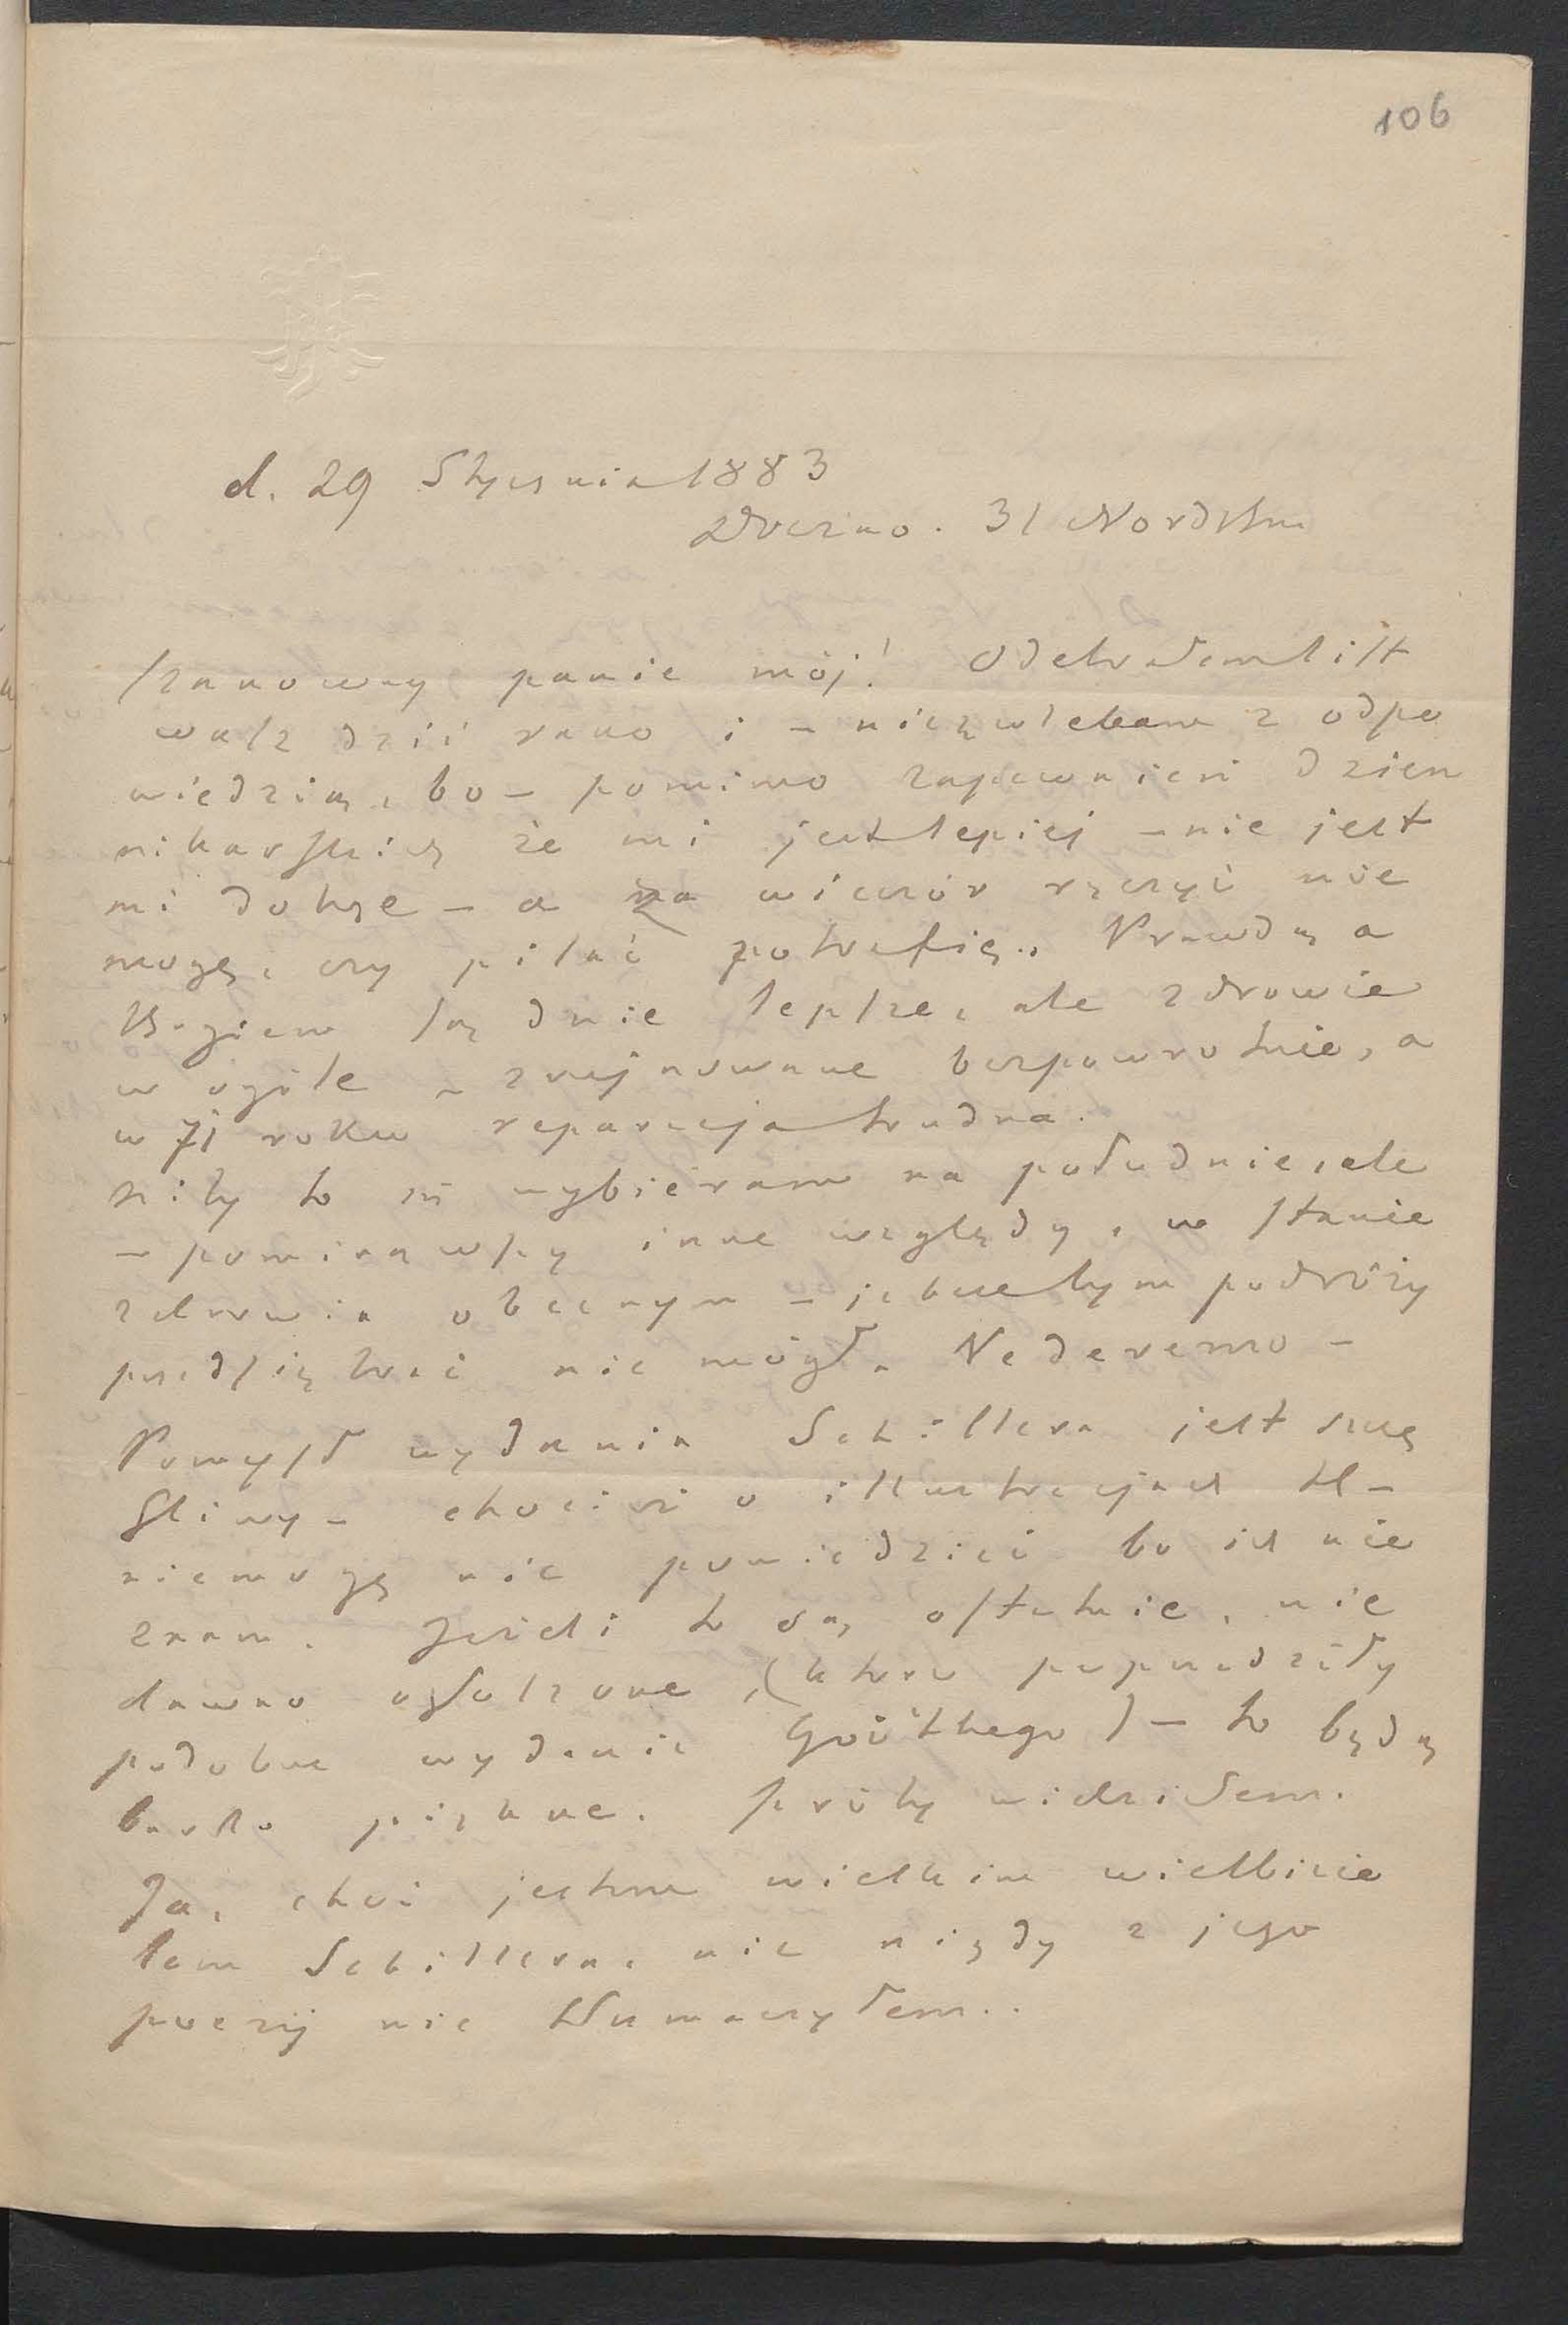 106
d. 29 Stycznia 1883
Drezno. 31 Nordstr.
Szanowny panie mój! Odebrałem list
wasz dziś rano i – nie zwlekam z odpo
wiedzią, bo – pomimo zapewnień dzien
nikarskich że mi jest lepiej – nie jest
mi dobrze – a za wieczór ręczyć nie
mogę, czy pisać potrafię.. Prawda, a
Bogiem są dnie lepsze, ale zdrowie
w ogóle – zrujnowane bezpowrotnie, a
w 71 roku reparacja trudna.
niby to się wybieram na południe, ale
– pominąwszy inne względy, w stanie
zdrowia obecnym – jabym podróży
przedsięwziąć nie mógł. Vederemo –
Pomysł wydania Schillera jest szczę
śliwy – chociaż o illustracjach tl –
niemogę nic powiedzieć bo ich nie
znam. Jeżeli to są ostatnie, nie
dawno ogłoszone, (które poprzedziły
podobne wydanie Goethego) – to będą
bardzo piękne. próby widziałem.
Ja, choć jestem wielkim wielbicie
lem Schillera, nic nigdy z jego
poezij nie tłumaczyłem..